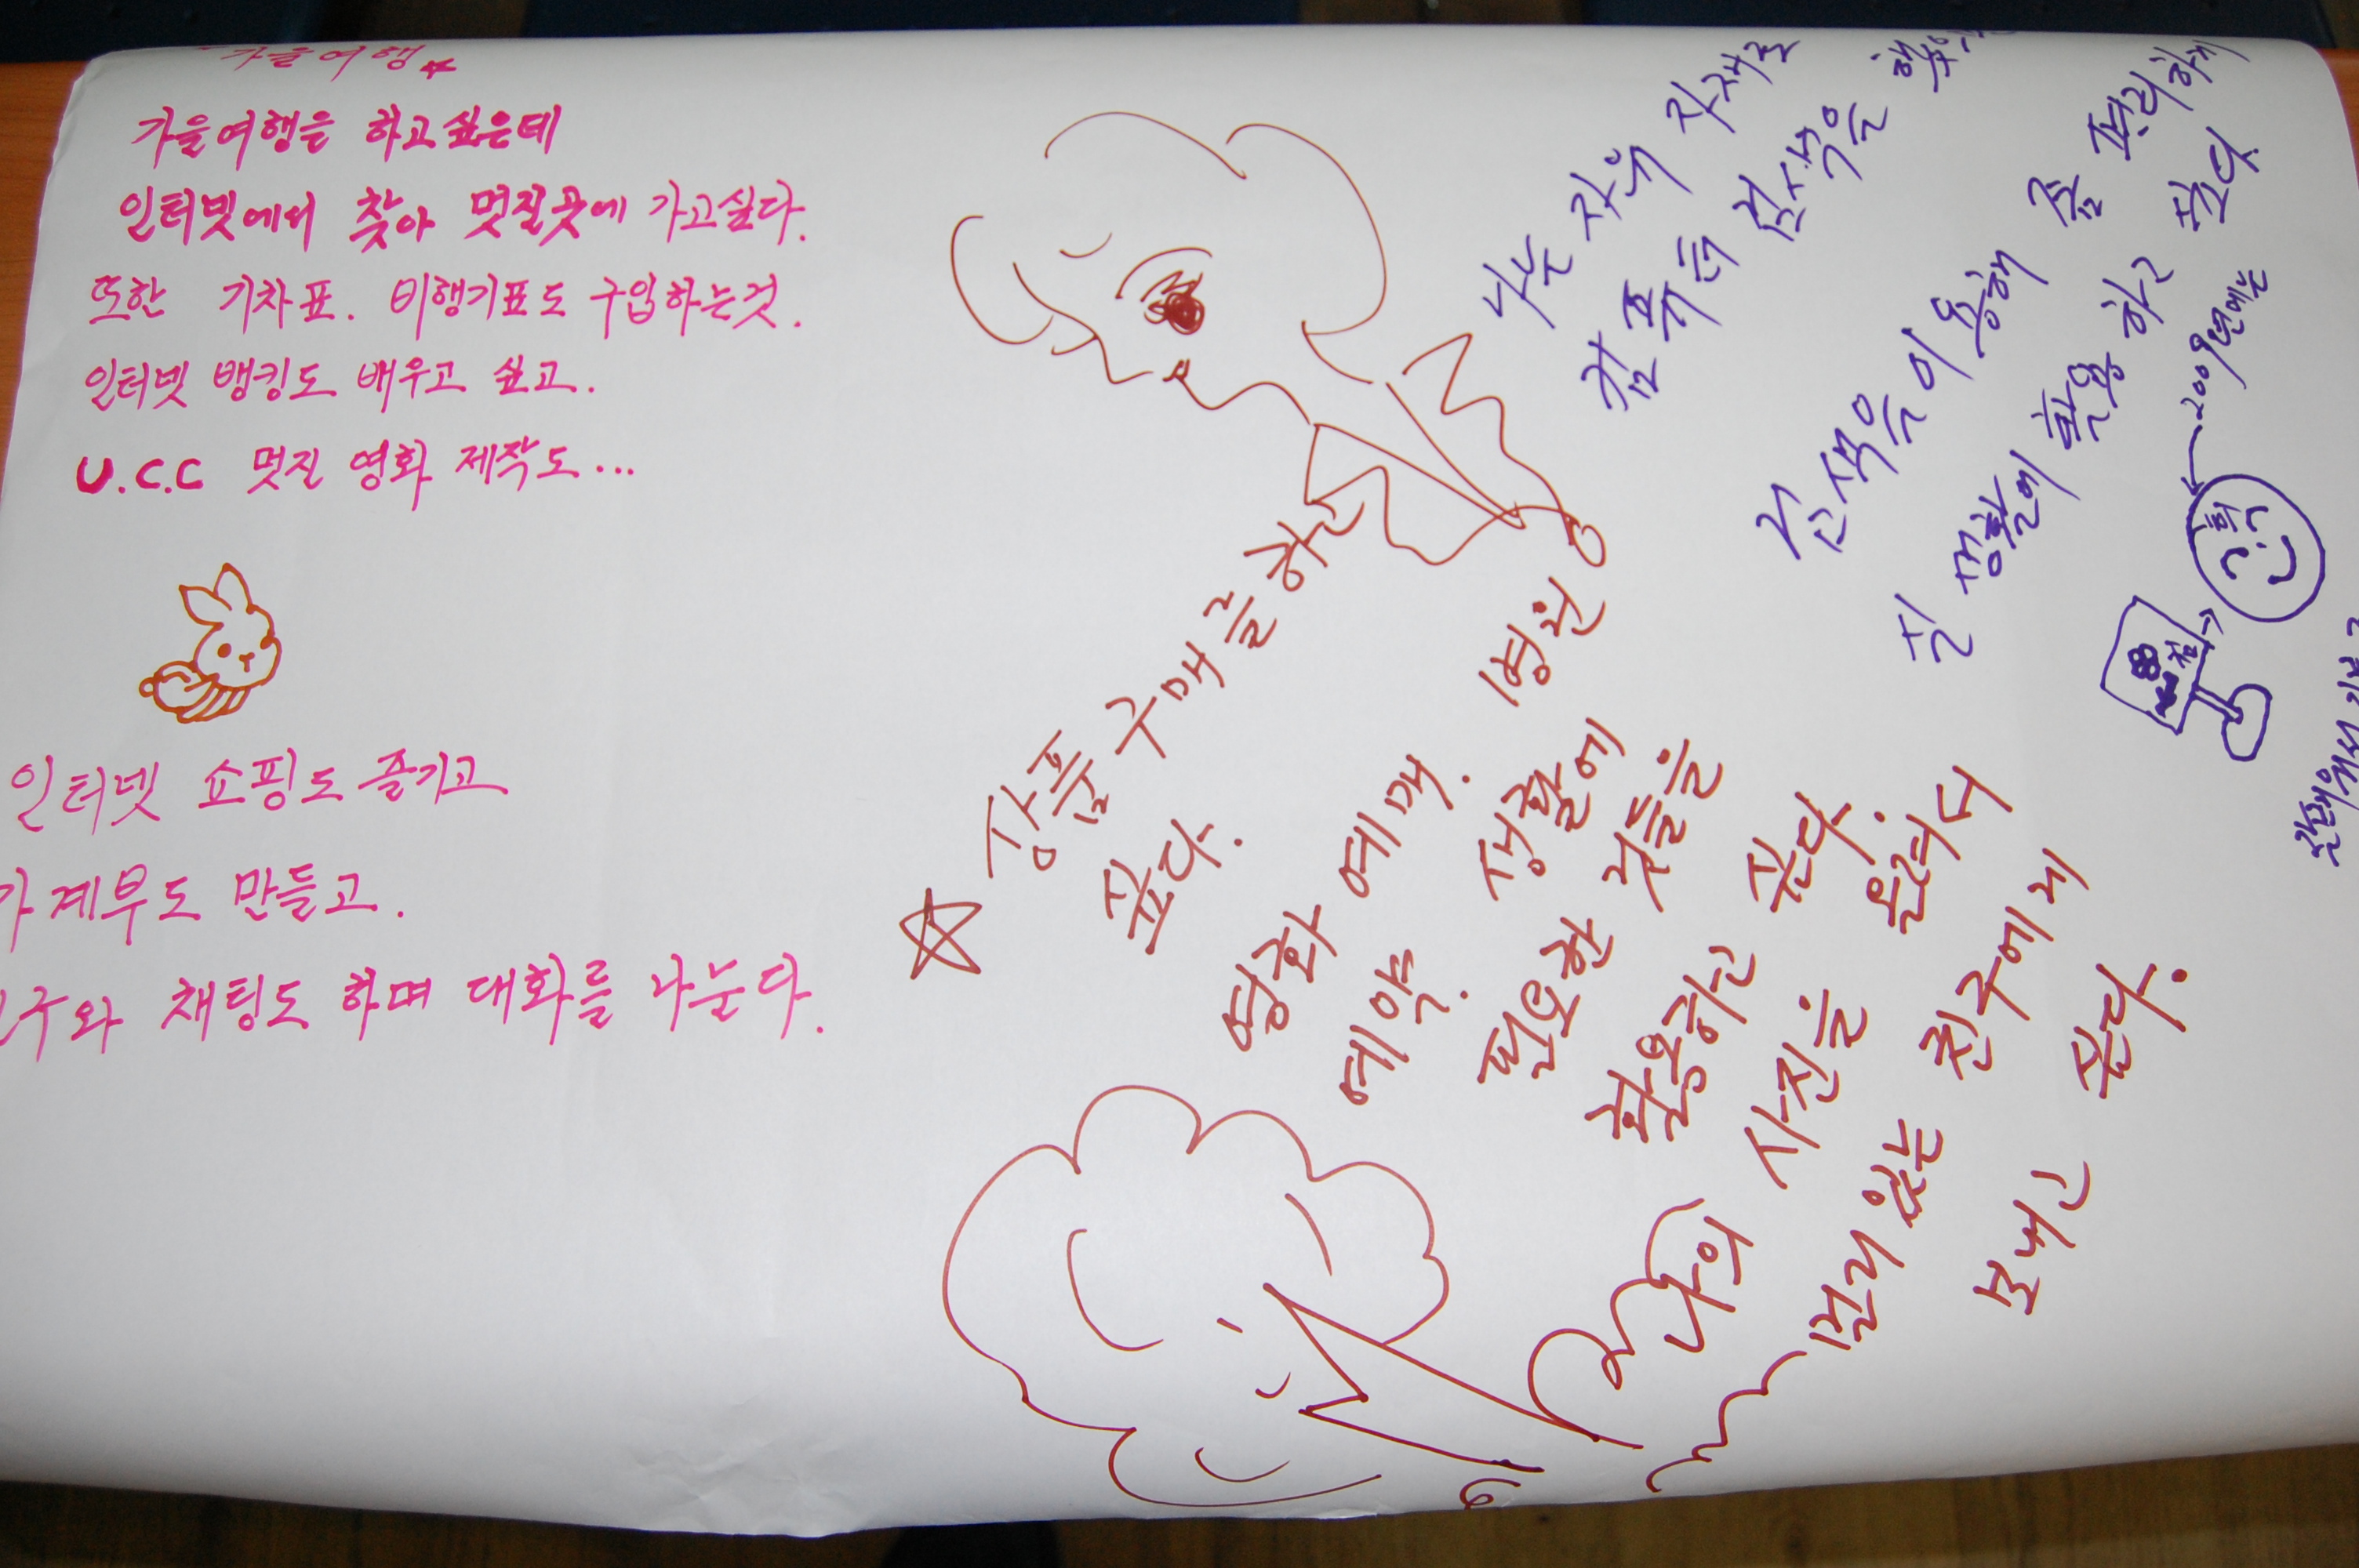 가을여행
가을여행을 하고싶은데
인터넷에서 찾아 멋질곳에 가고싶다.
또한 기차표. 비행기표도 구입하는것.
인터넷 뱅킹도 배우고 싶고.
U.C.C 멋진 영화 제작도...
인터넷 쇼핑도 즐기고
가계부도 만들고.
구와 채팅도 하며 대화를 나눈다.
상품구매를 하고
프다.
영화 예매. 병원
예약. 생활에
필요한 것들을
활용하고 프다.
나의 사진을 올려서
멀리 있는 친구에게
보내고 프다.
나는
컴퓨터 검색을
검색을 이용해 좀 편리하게
실 생활에 활용하고 프다
2009년에는